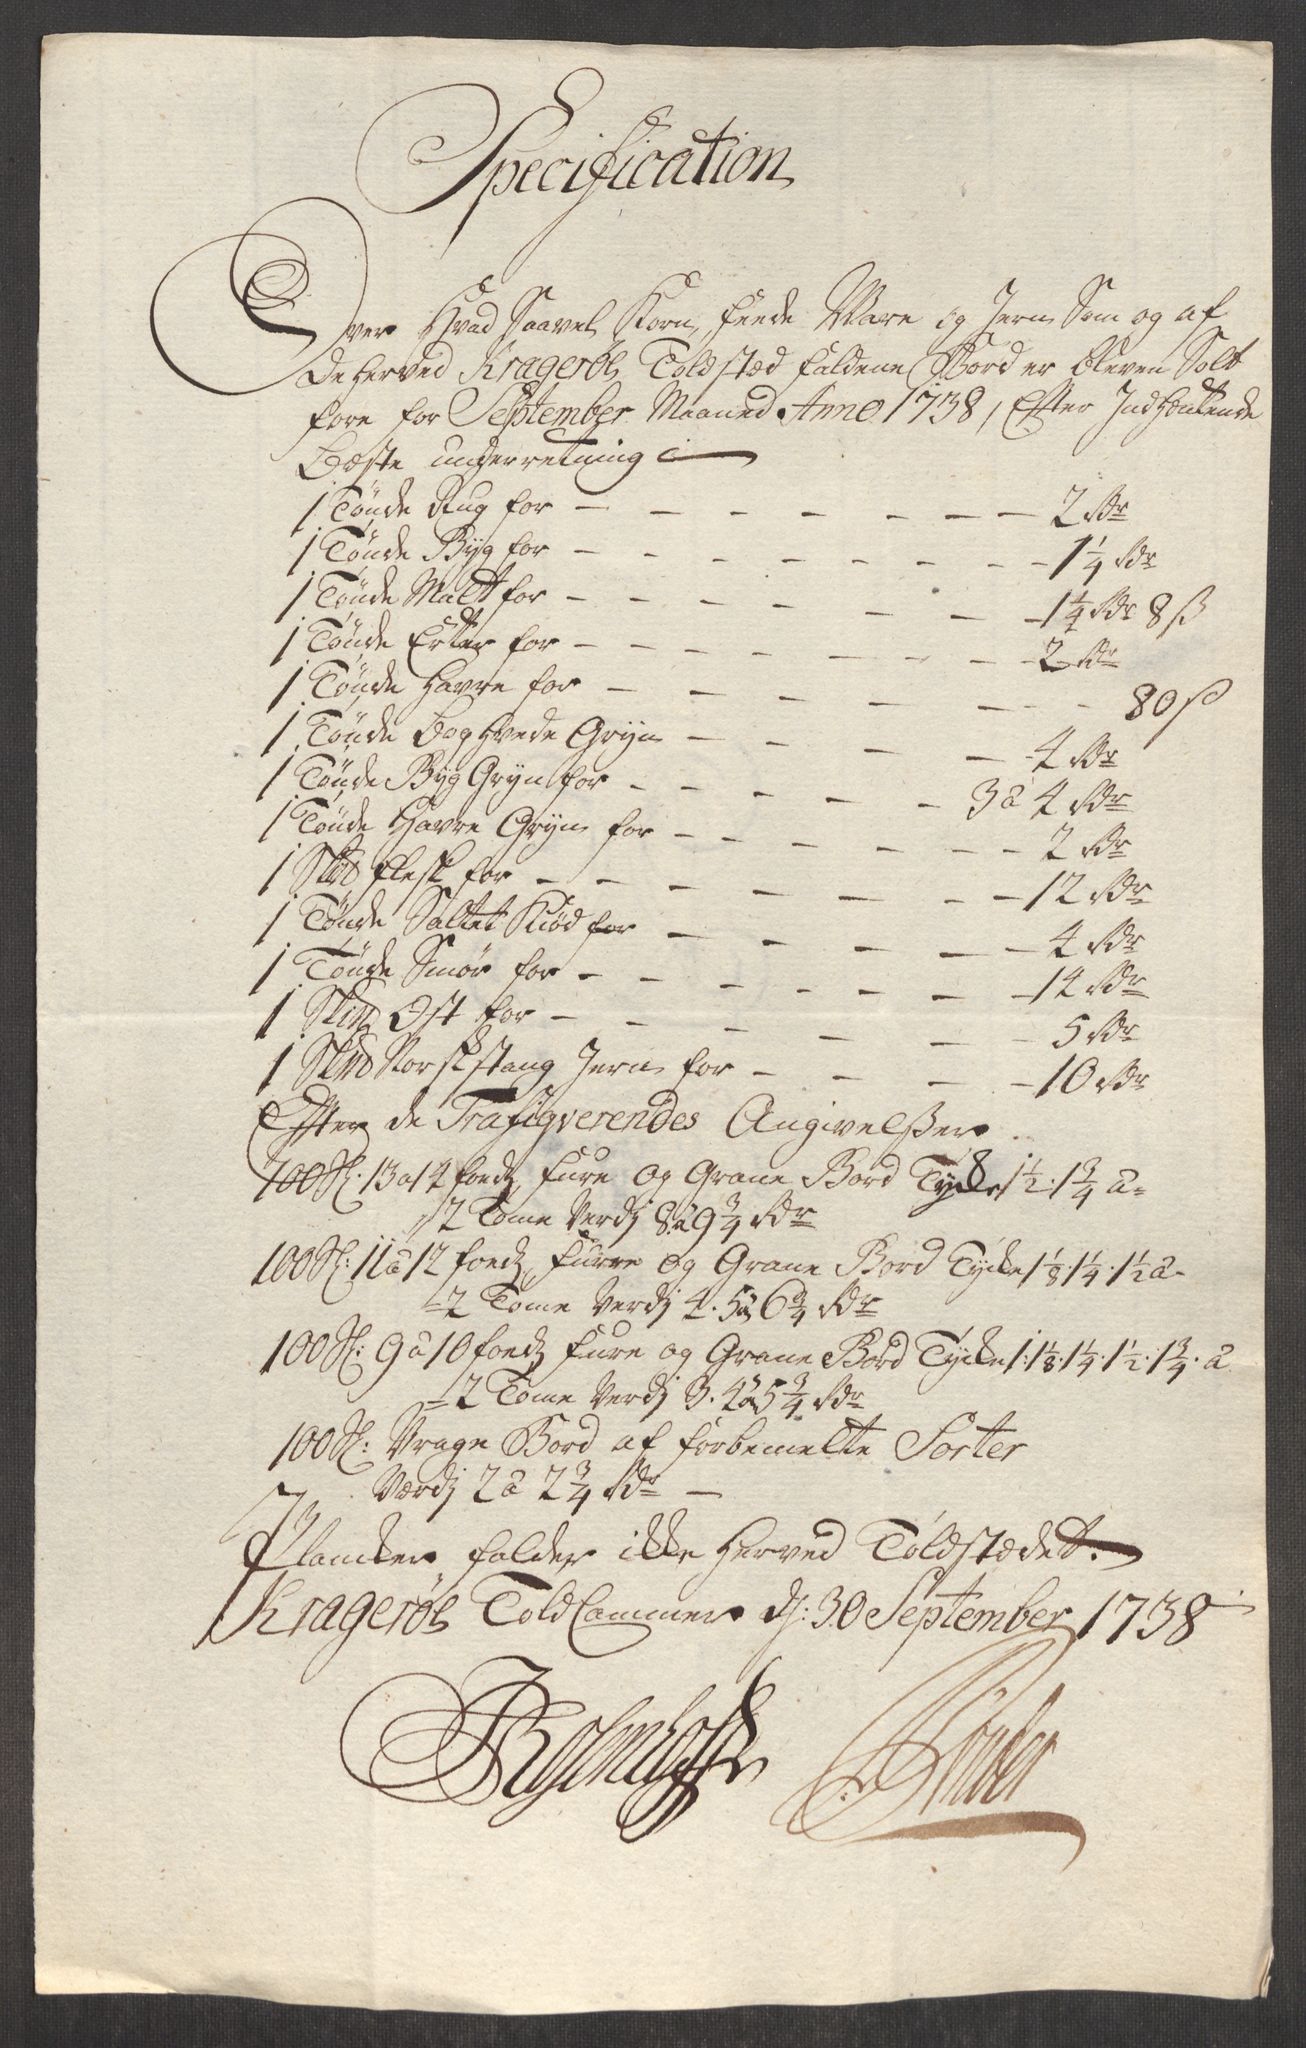 Specification
Over Hvad Saavel Korn, feede Ware og Jern Som og af
De herved Kragerøes Toldstæd faldene Bord er bleven Solt
fore for September Maaned Anno 1738, Efter Indhentende
beste underretning
1 Tønde Rug for — 2 Rdr
1 Tønde Byg for — 1 1/4 Rdr
1 Tønde Malt for — 1 1/4 Rdr 8 ß
1 Tønde Erter for — 2 Rdr
1 Tønde Havre for — 80 ß
1 Tønde Boghvede Gryn — 4 Rdr
1 Tønde Byg Gryn for — 3 a 4 Rdr
1 Tønde Havre Gryn for — 2 Rdr
1 Skpd flesk for — 12 Rdr
1 Tønde Saltet Kiød for — 4 Rdr
1 Tønde Smør for — 14 Rdr
1 Skpd Ost for — 5 Rdr
1 Skpd Norsk stang Jern for — 10 Rdr
Efter de Trafiqverendes Angivelßer
100 st: 13 a 14 foed, fure og Grane Bord Tycke 1 1/2. 1 3/4 a
2 Tome Verdj 8 a 9 3/4 Rdr
100 st: 11 a 12 foed, furre og Grane Bord Tycke 1 1/8. 1 1/4. 1 1/2 a
2 Tome Verdj 4. 5 a 6 3/4 Rdr
100 st: 9 a 10 foed fure og Grane Bord Tycke 1. 1 1/8. 1 1/4. 1 1/2. 1 3/4. a
2 Tome Verdj 3. 4 a 5 3/4 Rdr
100 st: Vrage Bord af forbemelte Sorter
Værdj 2 a 2 3/4 Rdr —
Plancker falder ikke herved Toldstædet.
Kragerøes Told Cammer d: 30 September 1738